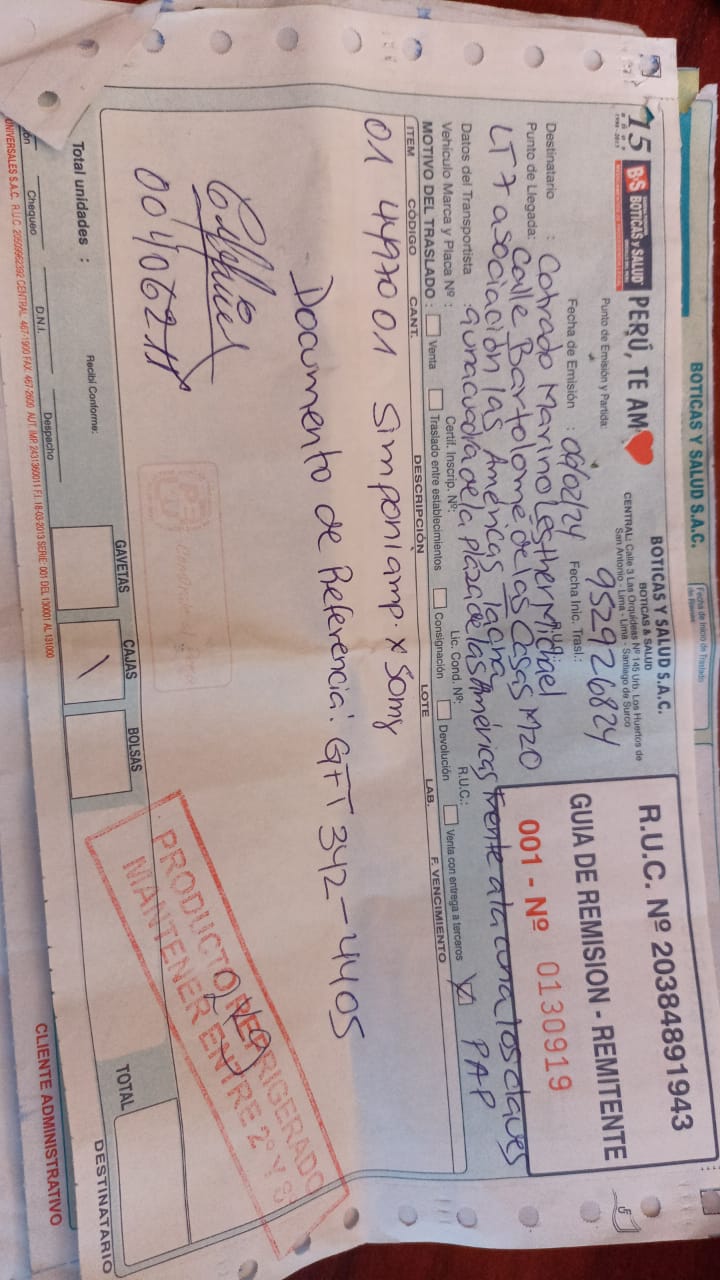 BOTICAS Y SALUD S.A.C.
Fecha de Inicio de Traslado
15 años
B•S BOTICAS y SALUD PERÚ, TE AM❤
BOTICAS Y SALUD S.A.C.
BOTICAS & SALUD
CENTRAL: Calle 3 Las Orquídeas Nº 145 Urb. Los Huertos de
San Antonio - Lima - Lima - Santiago de Surco
R.U.C. Nº 20384891943
GUIA DE REMISION - REMITENTE
001 - Nº 0130919
Punto de Emisión y Partida:
952926824
Fecha de Emisión : 06/02/24 Fecha Inic. Trasl.:
Destinatario : Cotrado Marino Esther Michael
Punto de Llegada: Calle Bartolomé de las Casas MZO
LT 7 asociación las Américas Tacna frente a la
Datos del Transportista : de la plaza de las Américas R.U.C.:
Certif. Inscrip. Nº:
Vehículo Marca y Placa Nº : Lic. Cond. Nº:
MOTIVO DEL TRASLADO : Venta Traslado entre establecimientos Consignación Devolución Venta con entrega a terceros X PAP
ITEM CÓDIGO CANT. DESCRIPCIÓN LOTE LAB. F. VENCIMIENTO
01 44970 01 Simponi amp. x 50mg
Documento de Referencia: GFT 342-4405
00406211
2K9
PRODUCTO REFRIGERADO
MANTENER ENTRE 2º Y 8º
Total unidades :
Recibí Conforme:
GAVETAS CAJAS BOLSAS TOTAL
1
DESTINATARIO
Chequeo D.N.I. Despacho
CLIENTE ADMINISTRATIVO
UNIVERSALES S.A.C. R.U.C. 20509952392 CENTRAL 467-1900 FAX. 467-2600 AUT. IMP. 2431360011 F.I. 18-03-2013 SERIE 001 DEL 130001 AL 131000